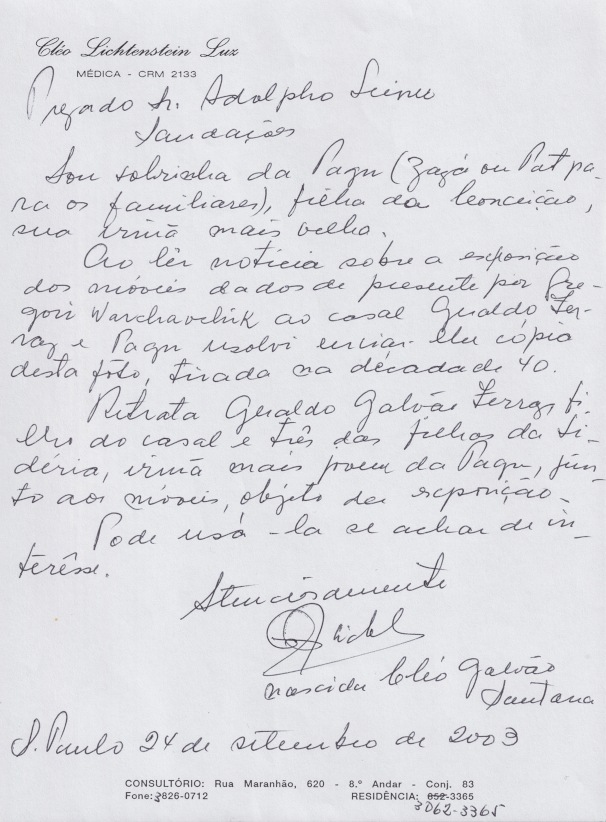 Cléo Lichtenstein Luz
MÉDICA - CRM 2133
Prezado Sr. Adolpho Leirner
Saudações
Sou sobrinha da Pagu (Zazá ou Pat pa-
ra os familiares), filha da Conceição,
sua irmã mais velha.
Ao lêr notícia sobre a exposição
dos móveis dados de presente por Gre-
gori Warchavchik ao casal Geraldo Fer-
raz e Pagu resolvi enviar-lhe cópia
desta fóto, tirada na década de 40.
Retrata Geraldo Galvão Ferraz fi-
lho do casal e três das filhas da Si-
déria, irmã mais jovem da Pagu, jun-
to aos móveis, objeto da exposição.
Pode usá-la se achar de in-
terêsse.
Atenciosamente
nascida Cléo Galvão
Santana
S. Paulo 24 de setembro de 2003
CONSULTÓRIO: Rua Maranhão, 620 - 8.º Andar - Conj. 83
Fone: 3826-0712 RESIDÊNCIA: 852-3365
3062-3365